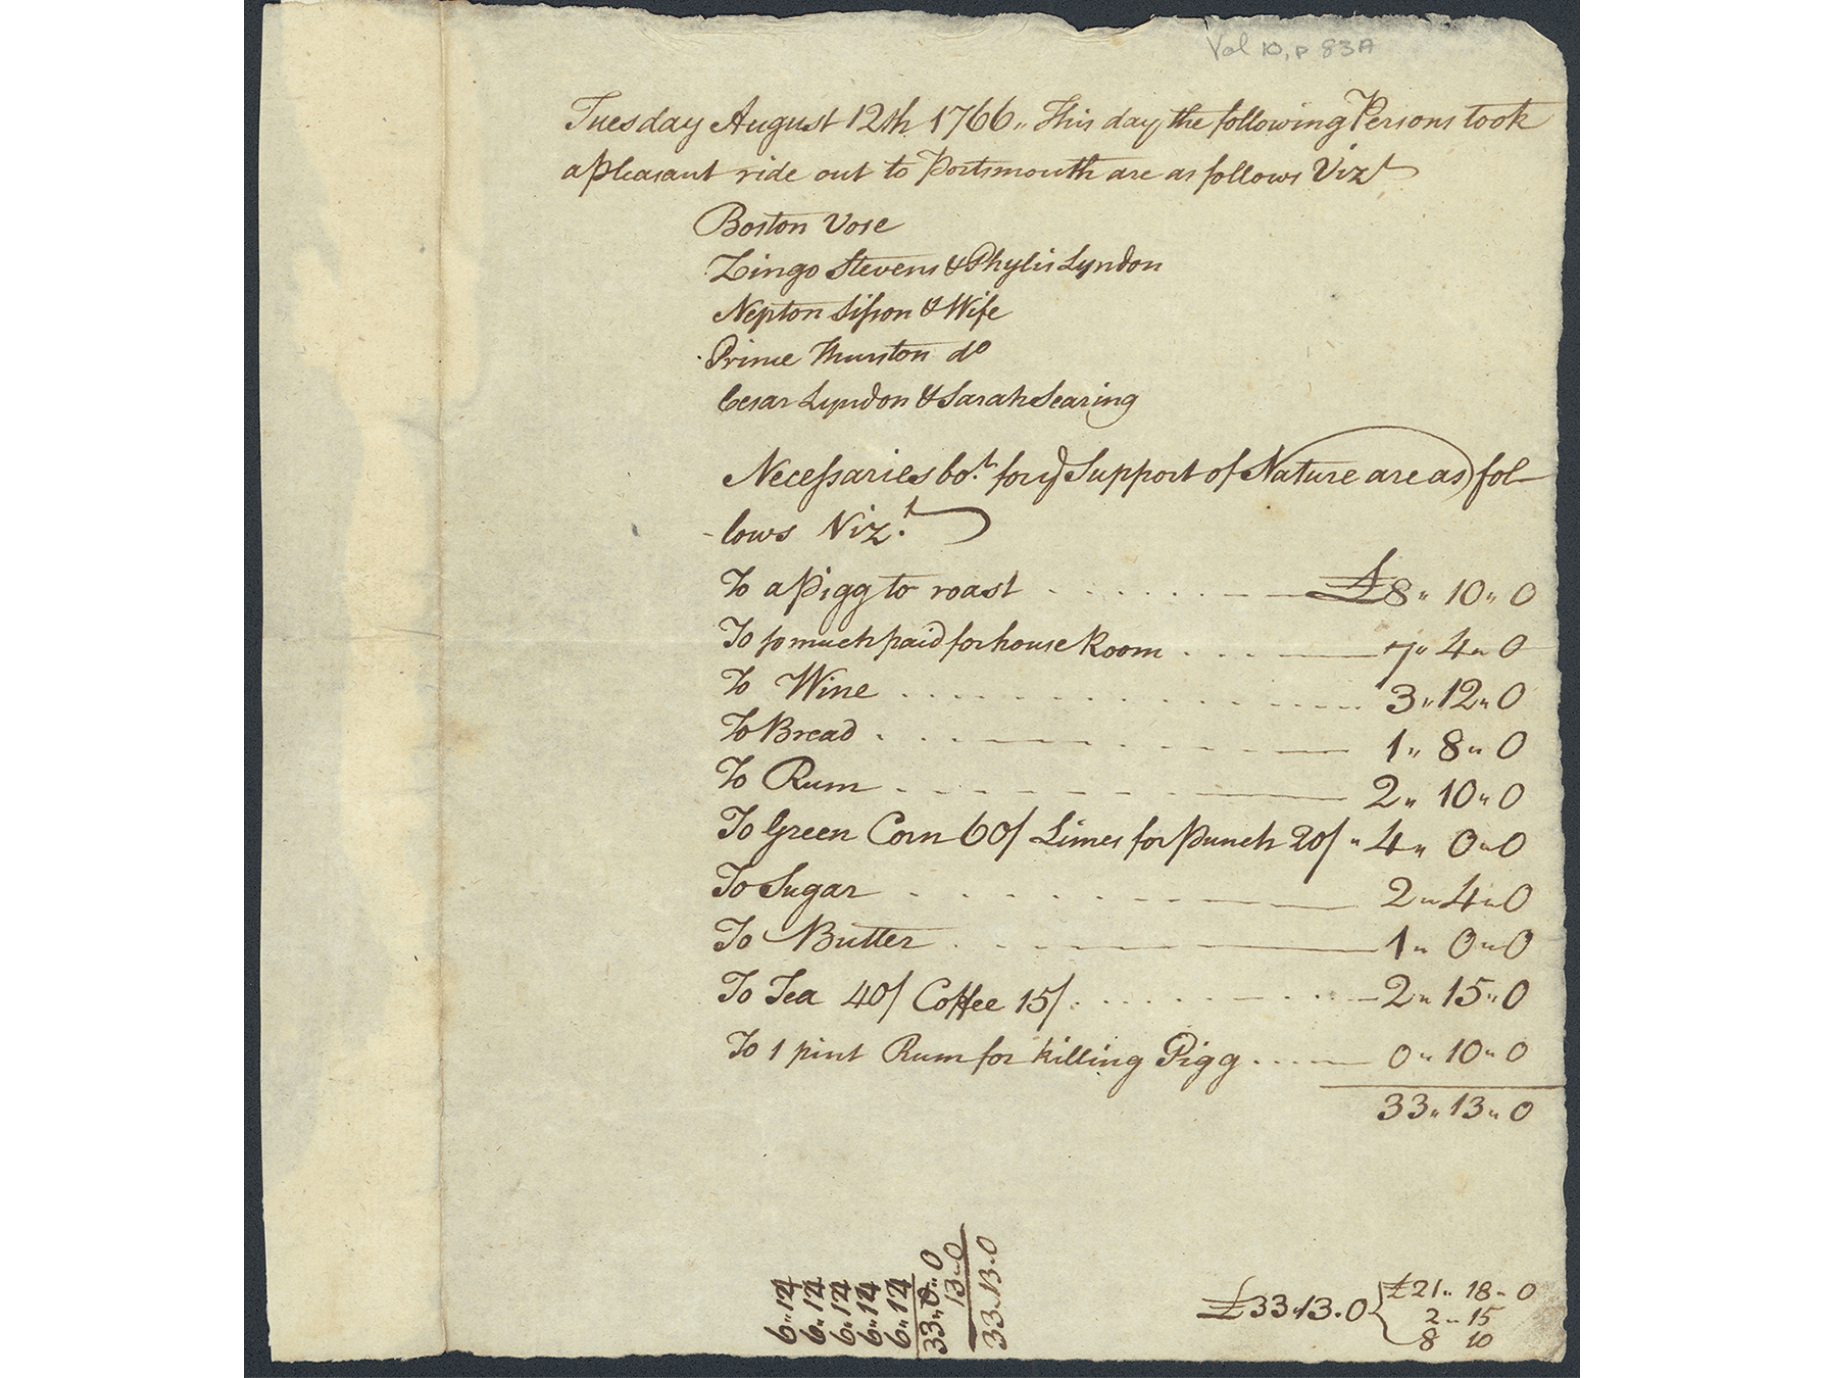 Vol 10, p 83A
Tuesday August 12th 1766 „ This day the following Persons took
a Pleasant ride out to Portsmouth are as follows Vizt
Boston Vose
Zingo Stevens & Phylis Lyndon
Nepton Sisson & Wife
Prince Thurston do
Cesar Lyndon & Sarah Searing
Necessaries bo.t for ye Support of Nature are as fol-
-lows Viz.t
To a Pigg to roast £8 „ 10 „ 0
To so much paid for house Room 7 „ 4 „ 0
To Wine 3 „ 12 „ 0
To Bread 1 „ 8 „ 0
To Rum 2 „ 10 „ 0
To Green Corn 60/ Limes for Punch 20/ „ 4 „ 0 „ 0
To Sugar 2 „ 4 „ 0
To Butter 1 „ 0 „ 0
To Tea 40/ Coffee 15/ 2 „ 15 „ 0
To 1 pint Rum for killing Pigg 0 „ 10 „ 0
33 „ 13 „ 0
6 „ 12
6 „ 12
6 „ 12
6 „ 12
6 „ 12
33 „ 0 „ 0
13 „ 0
33 „ 13 „ 0
£33 „ 13 „ 0
£21 „ 18 „ 0
2 „ 15
8 10